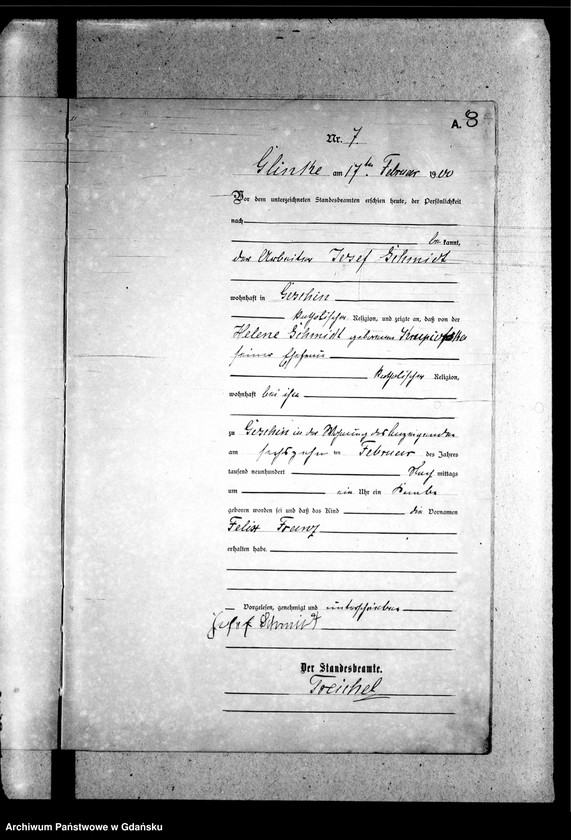 A. 8
Nr. 7.
Glinke am 17ten Februar 1900
Vor dem unterzeichneten Standesbeamten erschien heute, der Persönlichkeit
nach
be kannt,
der Arbeiter Josef Schmidt
wohnhaft in
katholischer Religion, und zeigte an, daß von der
Helene Schmidt geborenen
seiner Ehefrau
katholischer Religion,
wohnhaft bei ihm
zu in der Wohnung des Anzeigenden
am sechszehn ten Februar des Jahres
tausend neunhundert Nach mittags
um ein Uhr ein Knabe
geboren worden sei und daß das Kind die Vornamen
Felix Franz
erhalten habe.
Vorgelesen, genehmigt und unterschrieben
Josef Schmidt
Der Standesbeamte.
Treichel
Archiwum Państwowe w Gdańsku